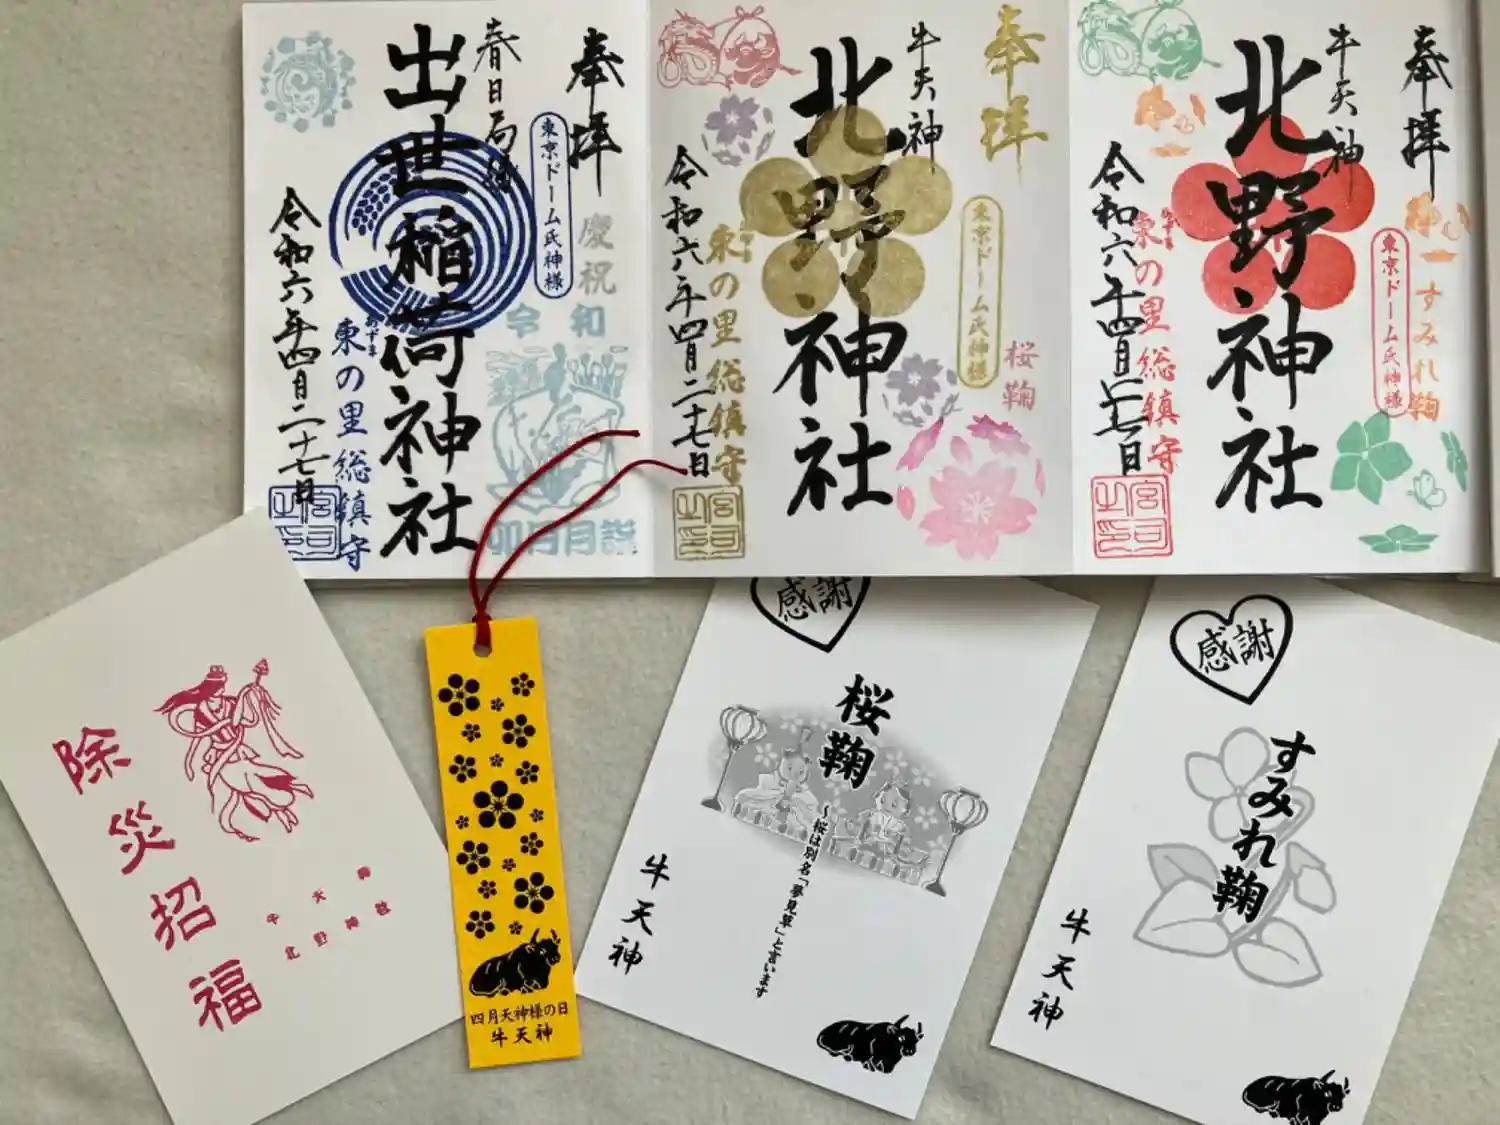 奉拝
春日局縁
出世稲荷神社
東京ドーム氏神様
慶祝
令和
卯月月詣
東の里総鎮守
あずま
令和六年四月二十七日
奉拝
牛天神
北野神社
東京ドーム氏神様
桜鞠
東の里総鎮守
令和六年四月二十七日
宮司之印
奉拝
牛天神
北野神社
東京ドーム氏神様
すみれ鞠
東の里総鎮守
令和六年四月廿七日
宮司之印
除災招福
牛天神
北野神社
四月天神様の日
牛天神
感謝
桜鞠
〜桜は別名「夢見草」と言います
牛天神
感謝
すみれ鞠
牛天神